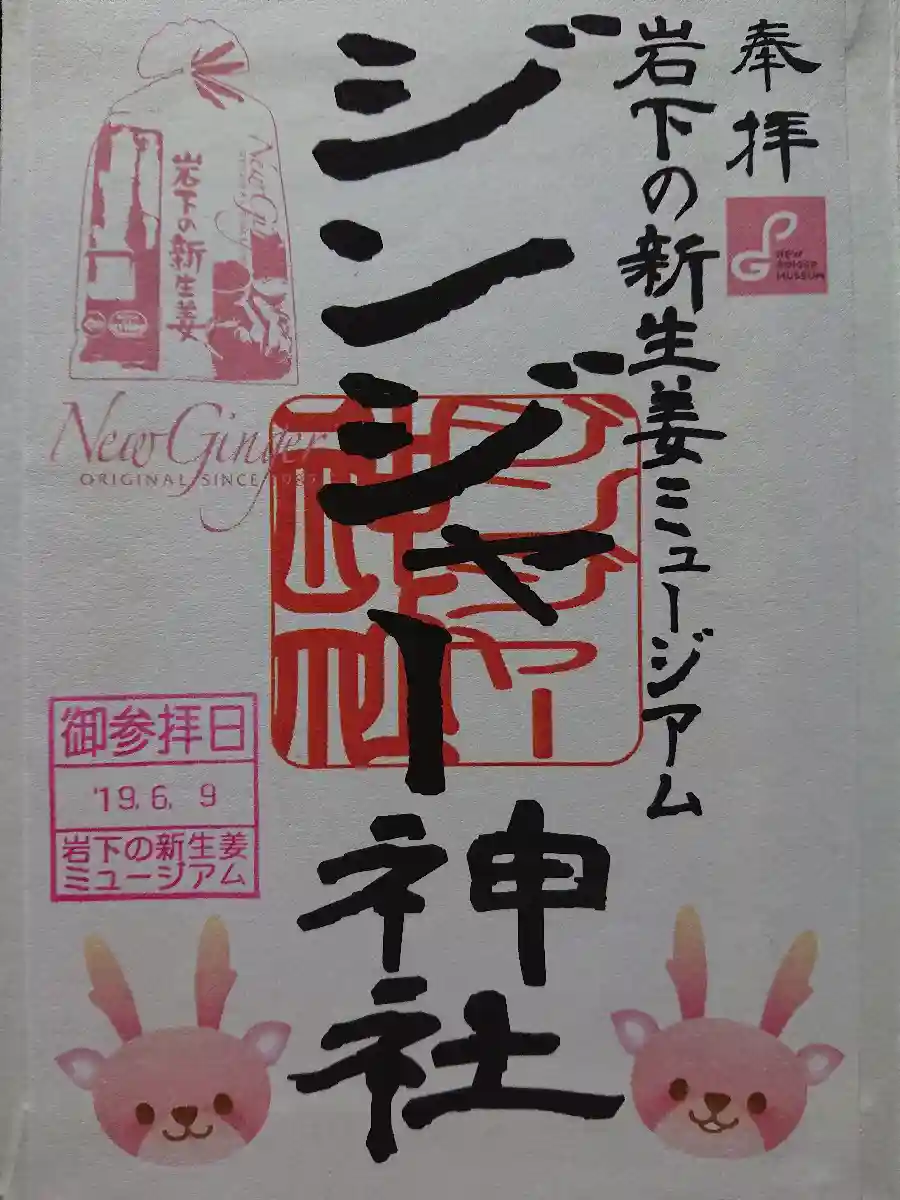 奉拝
NEW GINGER MUSEUM
岩下の新生姜ミュージアム
ジンジャー神社
ジンジャー神社
岩下の新生姜
New Ginger
New Ginger
ORIGINAL SINCE 1987
御参拝日
'19. 6. 9
岩下の新生姜
ミュージアム